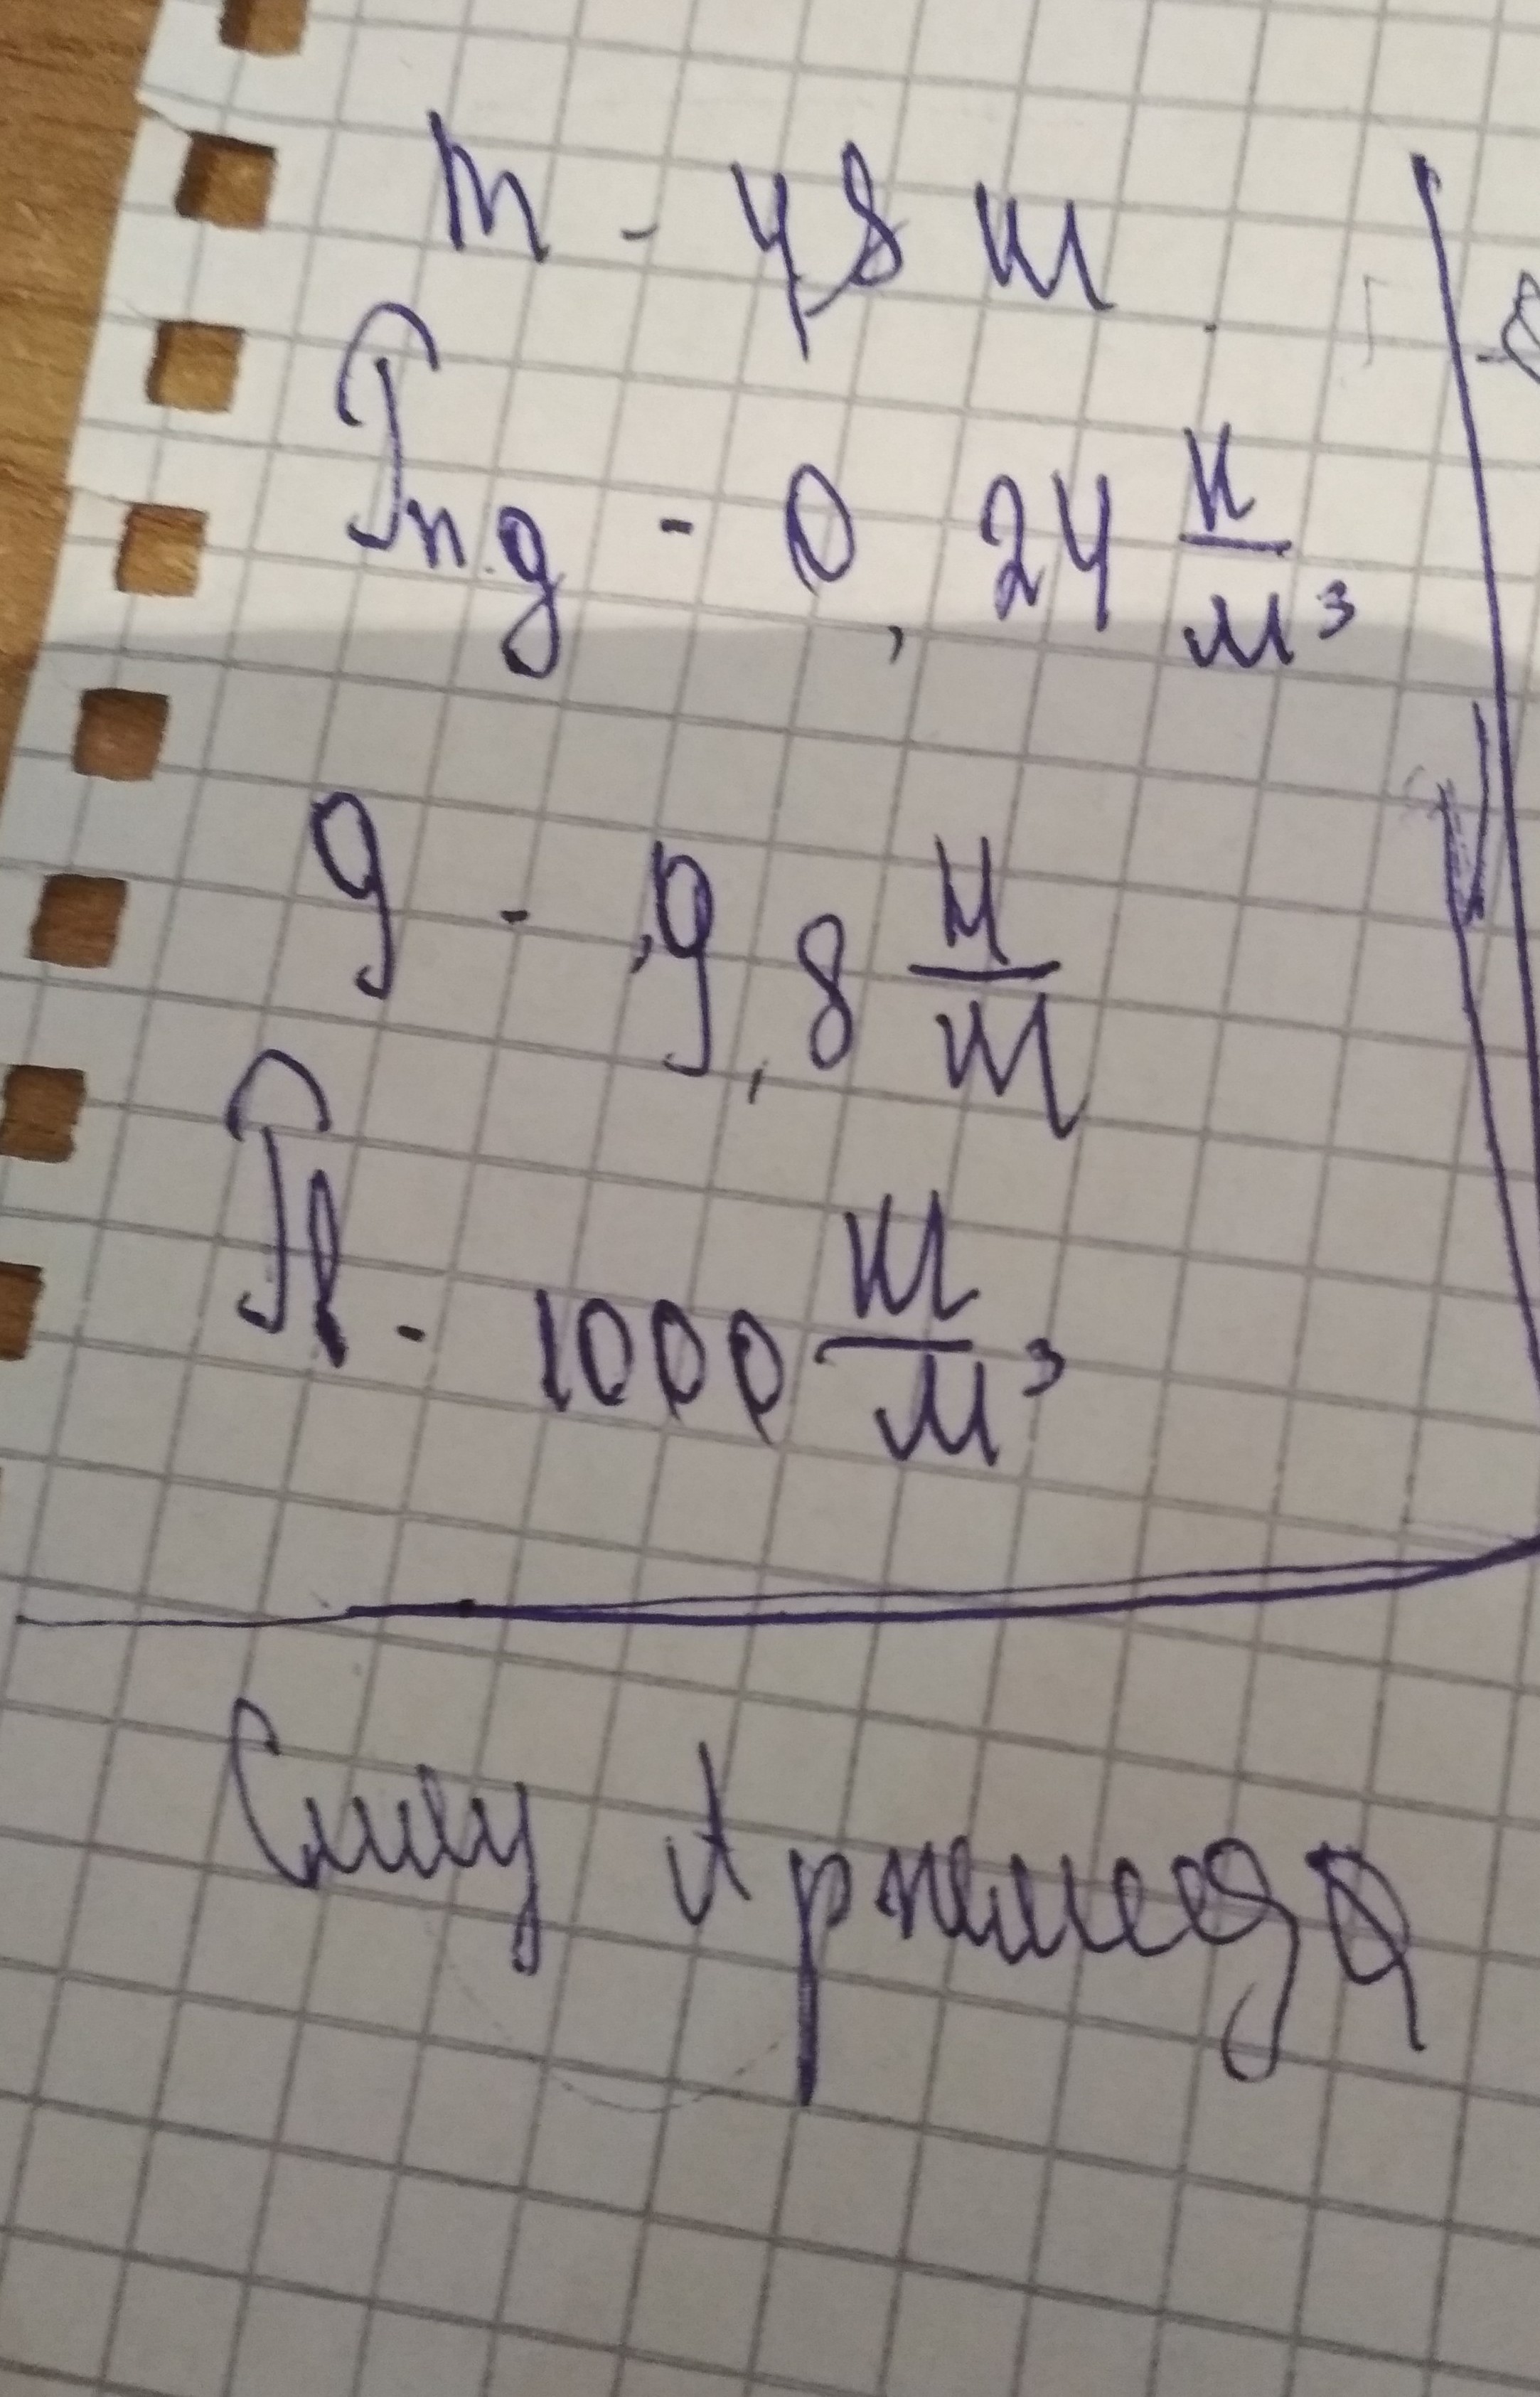 m - 48 кг
ρпд - 0,24 к/м³
g - 9,8 н/кг
ρв - 1000 кг/м³
Силу Архимеда